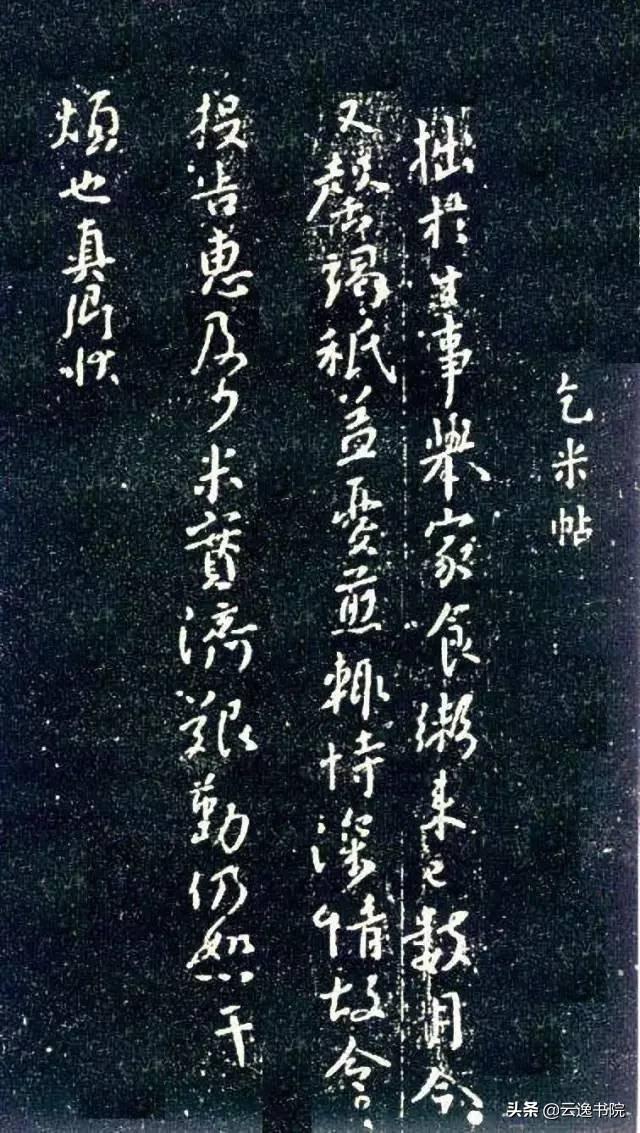 乞米帖
拙於生事舉家食粥來已數月今
又罄竭秖益憂煎輒恃深情故令
投告惠及少米實濟艱勤仍恕干
煩也真卿狀
头条 @云逸书院